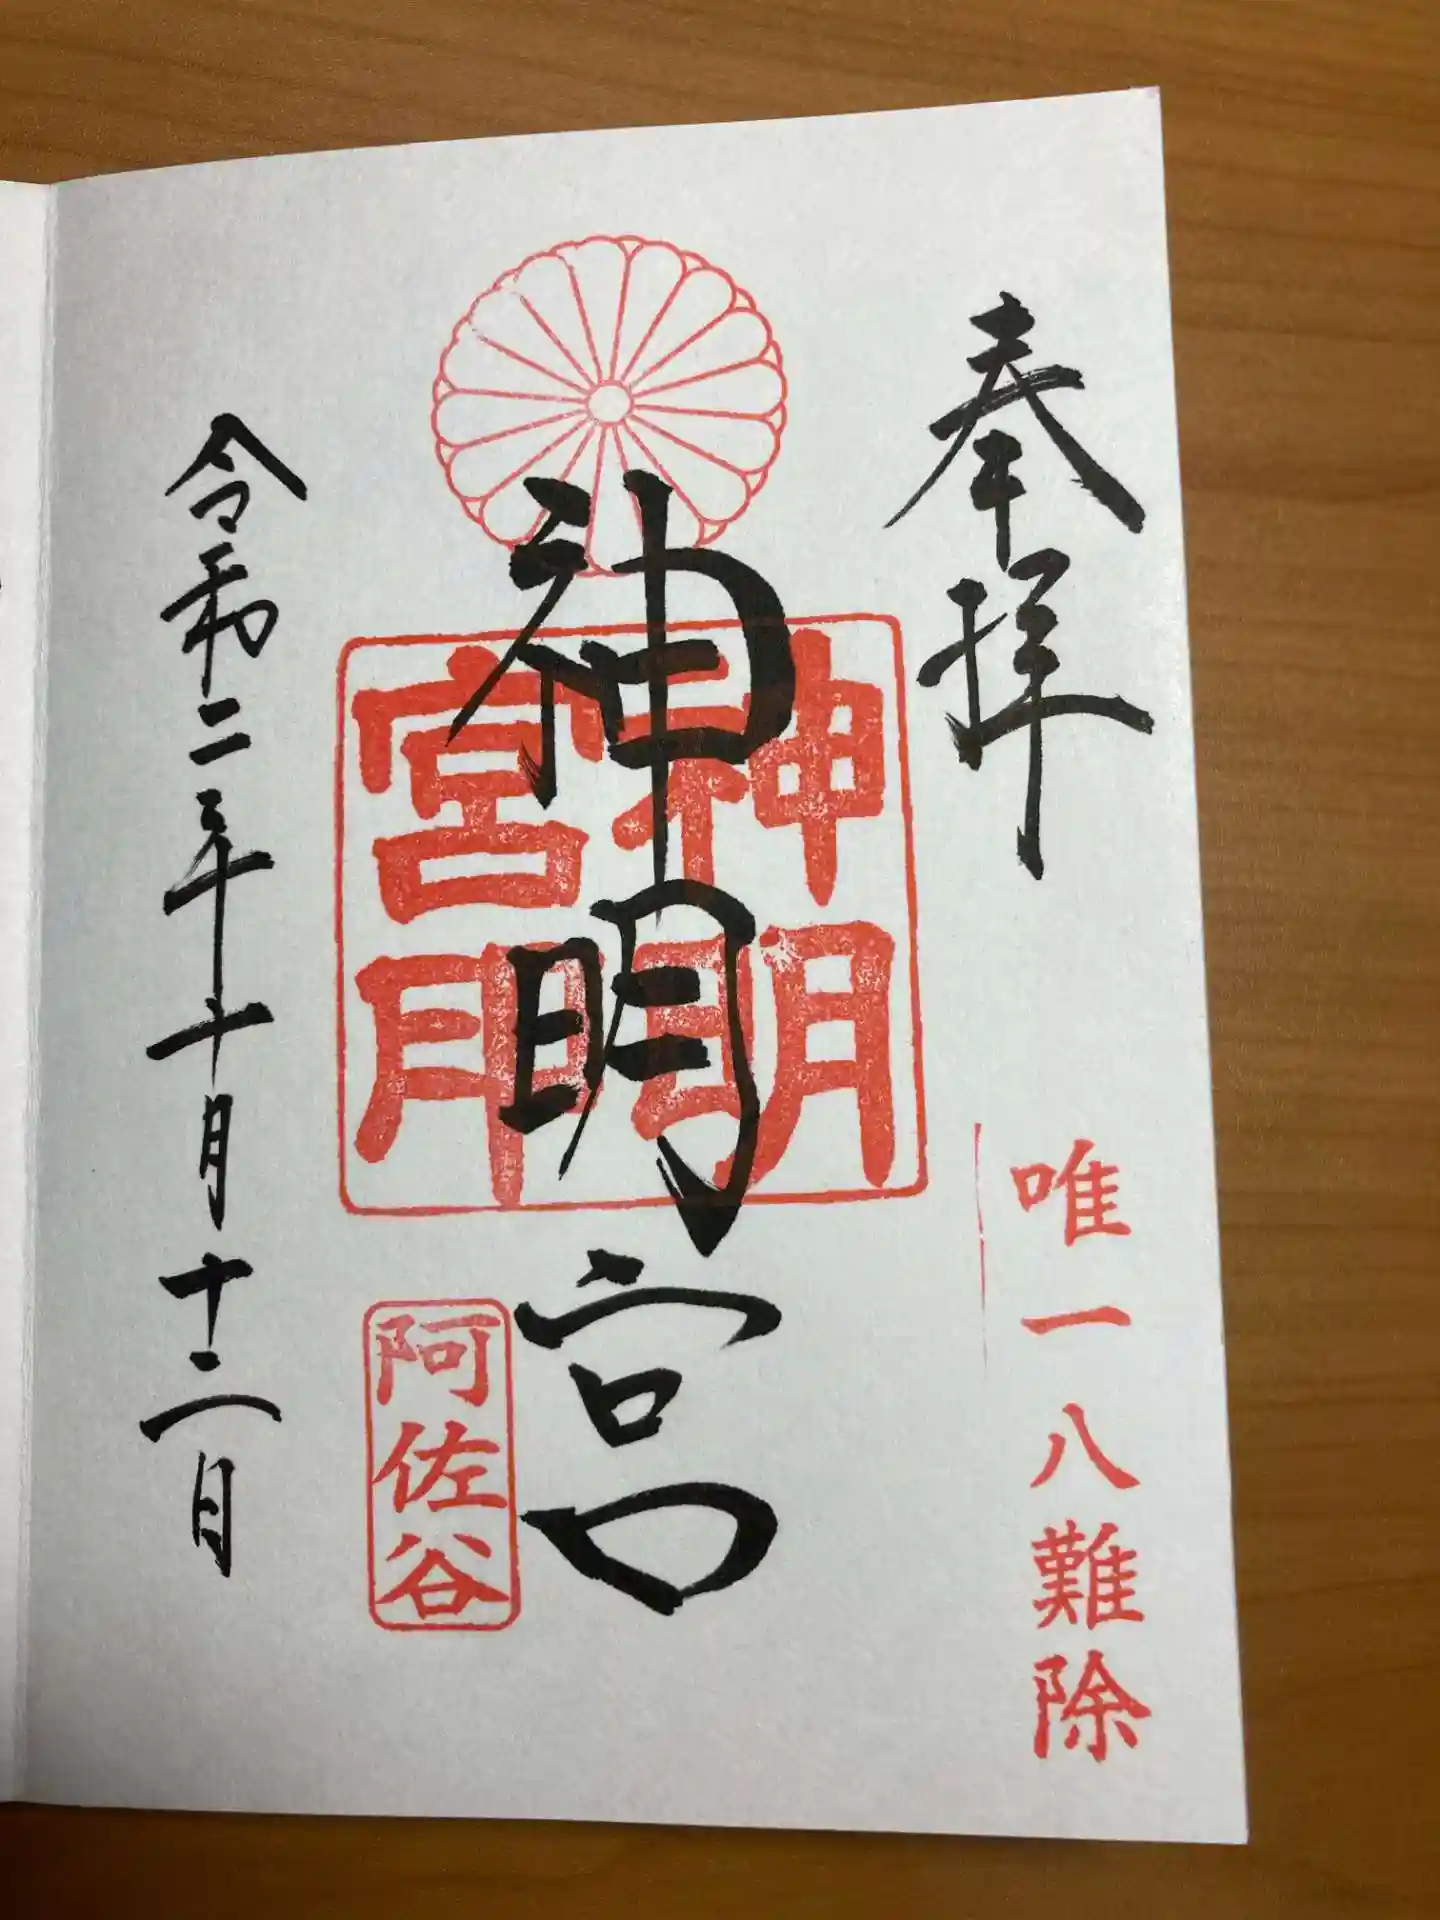 奉拝
唯一八難除
神明宮
神明
宮印
阿佐谷
令和二年十月十二日